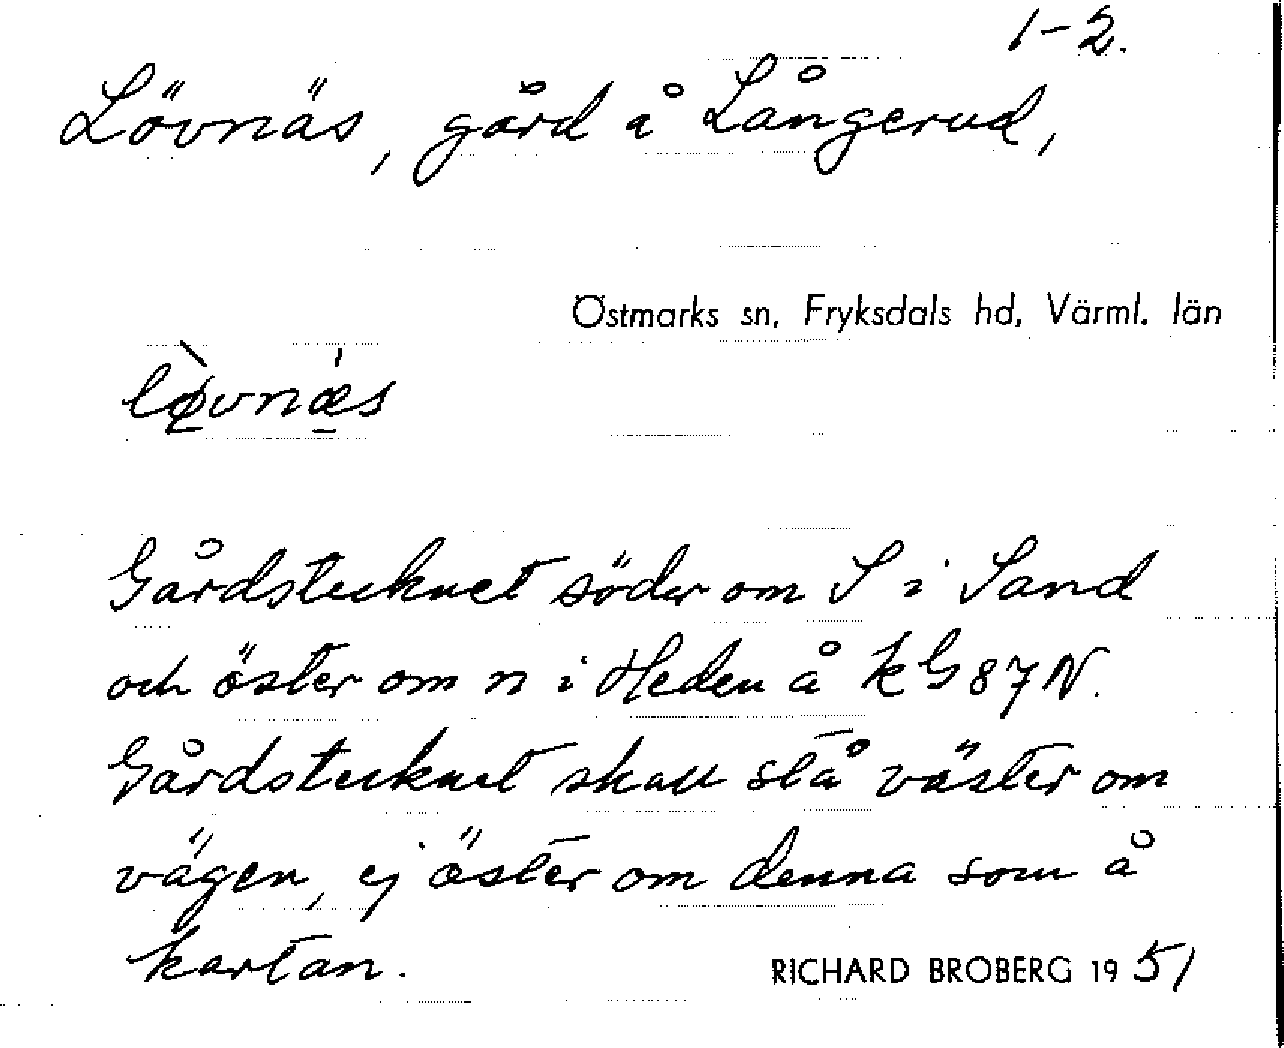 1-2.
Lövnäs, gård å Långerud,
Östmarks sn, Fryksdals hd, Värml. län
lø̀vnæ̍s
Gårdstecknet söder om S i Sand
och öster om n i Heden å kG87N.
Gårdstecknet skall stå väster om
vägen, ej öster om denna som å
kartan.
RICHARD BROBERG 1951